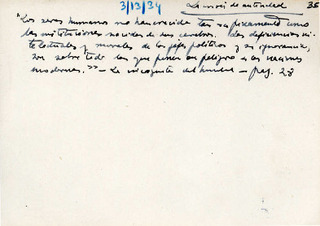 3/13/34 La crisis de autoridad 35
"Los seres humanos no han crecido tan rápidamente como
las instituciones nacidas de sus cerebros. Las deficiencias in-
telectuales y morales de los jefes políticos y su ignorancia,
son sobre todo las que ponen en peligro a las naciones
modernas.>> — La incógnita del hombre — pag. 28